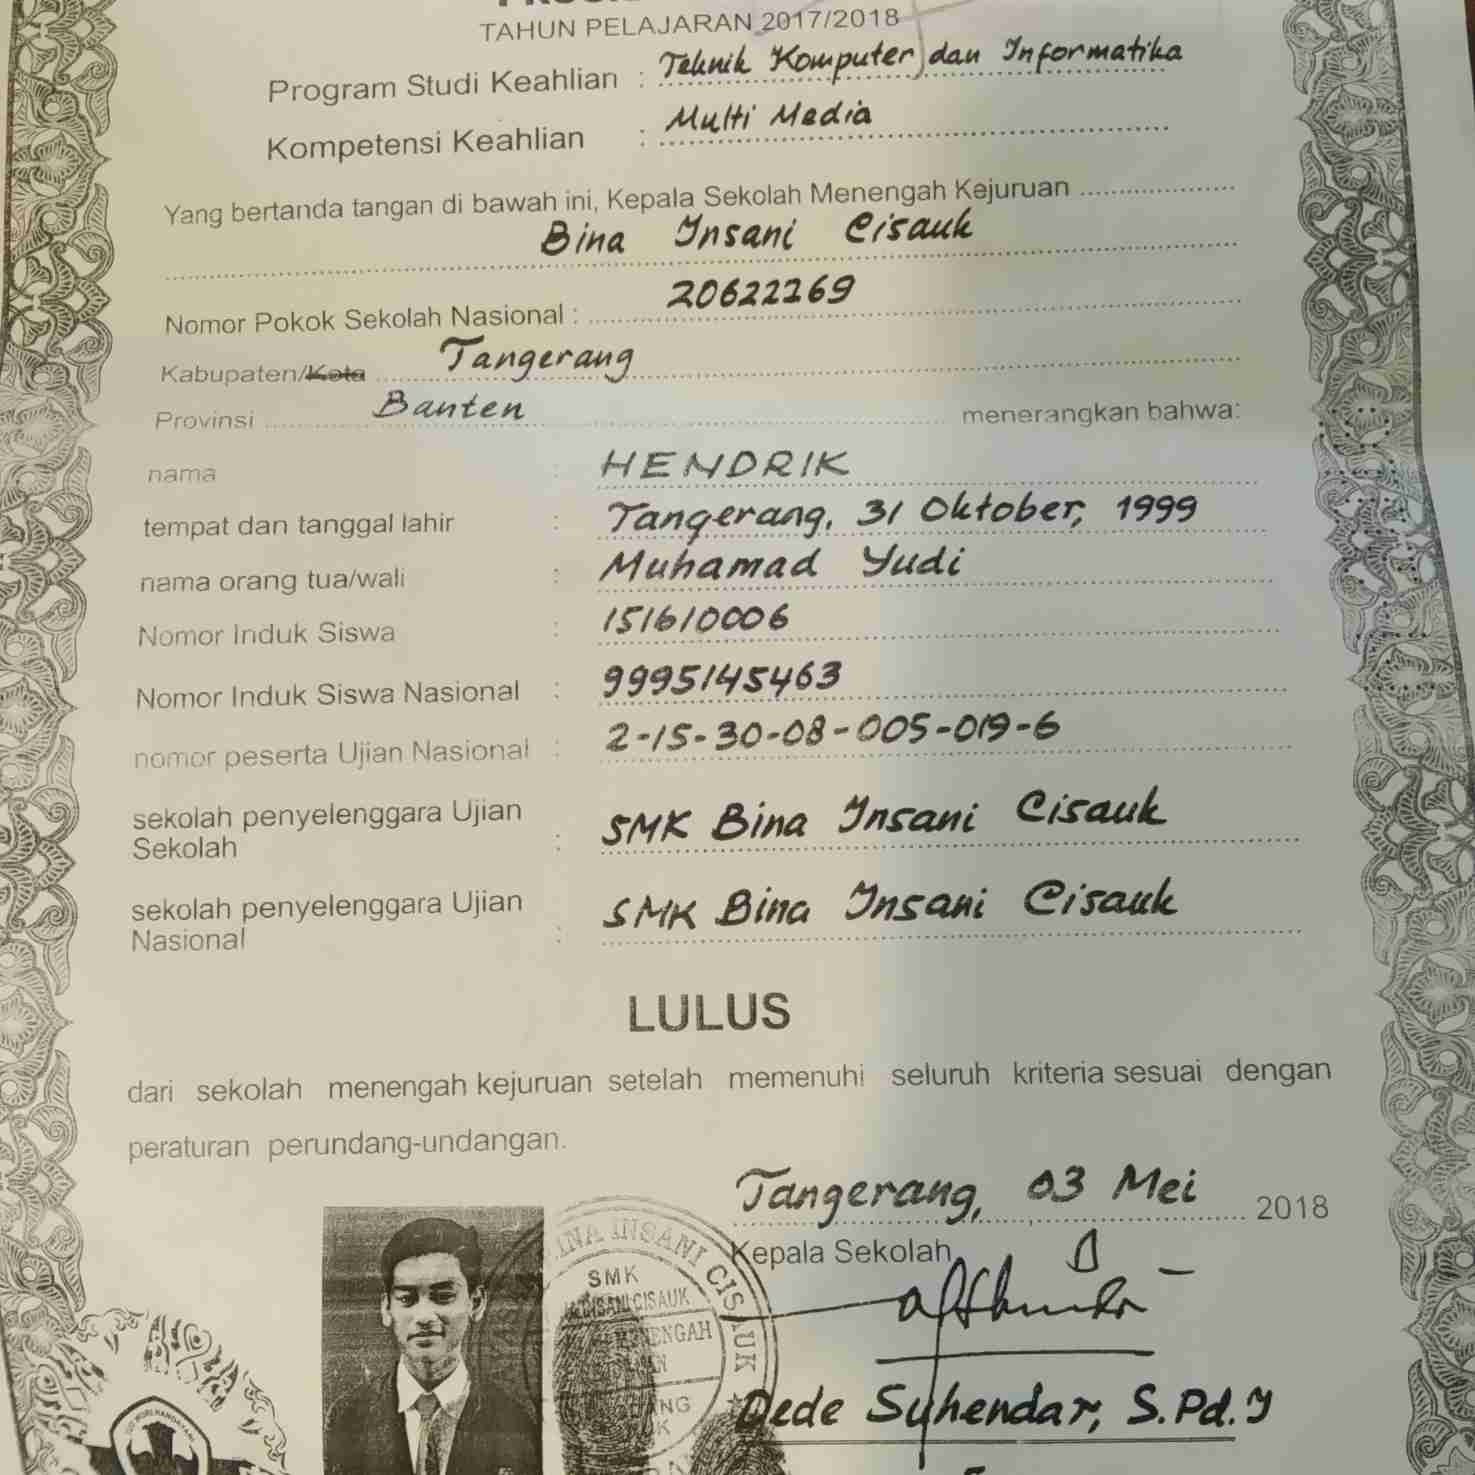 TAHUN PELAJARAN 2017/2018
Program Studi Keahlian : Teknik Komputer dan Informatika
Kompetensi Keahlian : Multi Media
Yang bertanda tangan di bawah ini, Kepala Sekolah Menengah Kejuruan
Bina Insani Cisauk
Nomor Pokok Sekolah Nasional : 20622269
Kabupaten/Kota Tangerang
Provinsi Banten menerangkan bahwa:
nama : HENDRIK
tempat dan tanggal lahir : Tangerang, 31 Oktober, 1999
nama orang tua/wali : Muhamad Yudi
Nomor Induk Siswa : 151610006
Nomor Induk Siswa Nasional : 9995145463
nomor peserta Ujian Nasional : 2-15-30-08-005-019-6
sekolah penyelenggara Ujian
Sekolah : SMK Bina Insani Cisauk
sekolah penyelenggara Ujian
Nasional : SMK Bina Insani Cisauk
LULUS
dari sekolah menengah kejuruan setelah memenuhi seluruh kriteria sesuai dengan
peraturan perundang-undangan.
Tangerang, 03 Mei 2018
Kepala Sekolah
INSANI CISAUK
SMK
CISAUK
Dede Suhendar, S.Pd.I